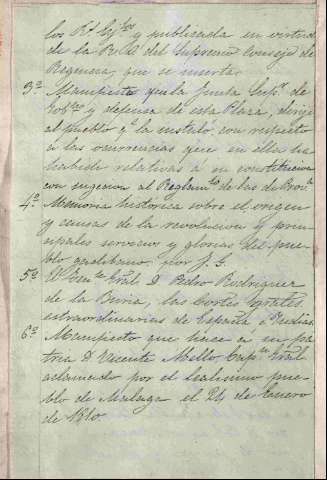 los Rs. Ejtos. y publicada en virtud
de la R. O. del Supremo Consejo de
Regencia, que se inserta.
3º Manifiesto que la Junta Supr. de
Gobno. y defensa de esta Plaza, dirije
al pueblo y la instuto, con respecto
a las ocurrencias que en ella ha
habido relativas a su constitucion
con sugecion al Reglamto. de las de Prova.
4º Memoria historica sobre el origen
y causas de la revolucion y prin-
cipales servicios y glorias del pue-
blo gaditano, por J. G.
5º El Tente. Gral. D. Pedro Rodriguez
de la Buria, las Cortes Grales.
extraordinarias de España e Indias.
6º Manifiesto que hace a su pa-
tria D. Vicente Mello Capn. Gral.
aclamado por el leal pue-
blo de Malaga el 24 de Enero
de 1810.